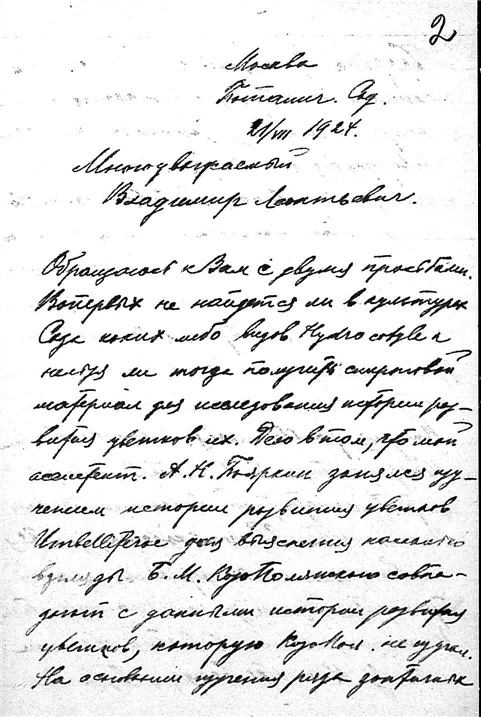 2
Москва
Ботанич. Сад.
21/VII 1924.
Многоуважаемый
Владимир Леонтьевич.
Обращаюсь к Вам с двумя просьбами.
Вопервых не найдется ли в культурах
Сада каких либо видов Hydrocotyle и
нельзя ли тогда получить спиртовой
материал для исследования истории раз-
вития цветков их. Дело в том, что мой
ассистент. А. Н. Пояркин занялся изу-
чением истории развития цветков
Umbelliferae для выяснения насколько
взгляды Б. М. Козо Полянского совпа-
дают с данными истории развития
цветков, которую Козо Пол. не изучал.
На основании изучения ряда